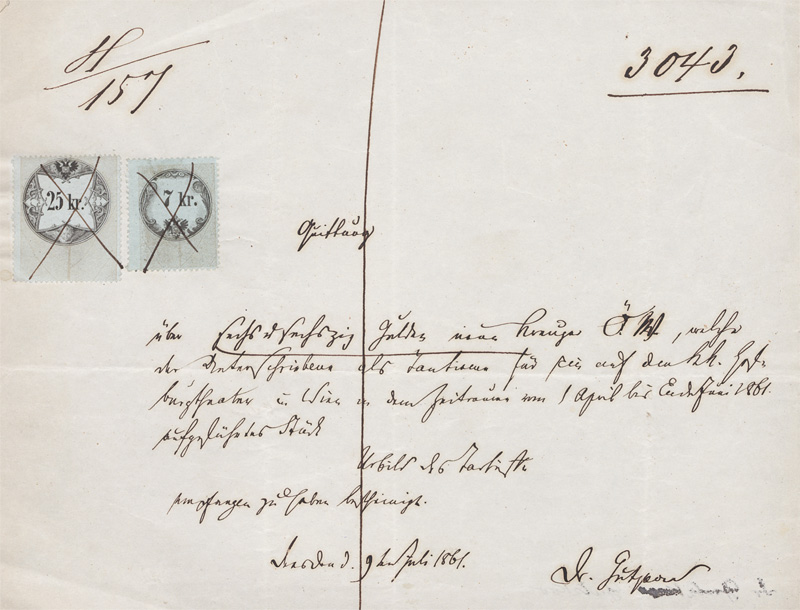 H/157
3043.
25 kr. 7 kr.
Quittung
über Sechs u Sechszig Gulden neun Kreuzer Ö. W, welche
der Unterschriebene als Tantieme für sein auf dem k.k. Hof=
burgtheater in Wien in dem Zeitraume vom 1 April bis Ende Juni 1861.
aufgeführtes Stück
Urbild des Tartüffe
empfangen zu haben bescheinigt.
Dresden d. 9ten Juli 1861.
Dr. Gutzkow